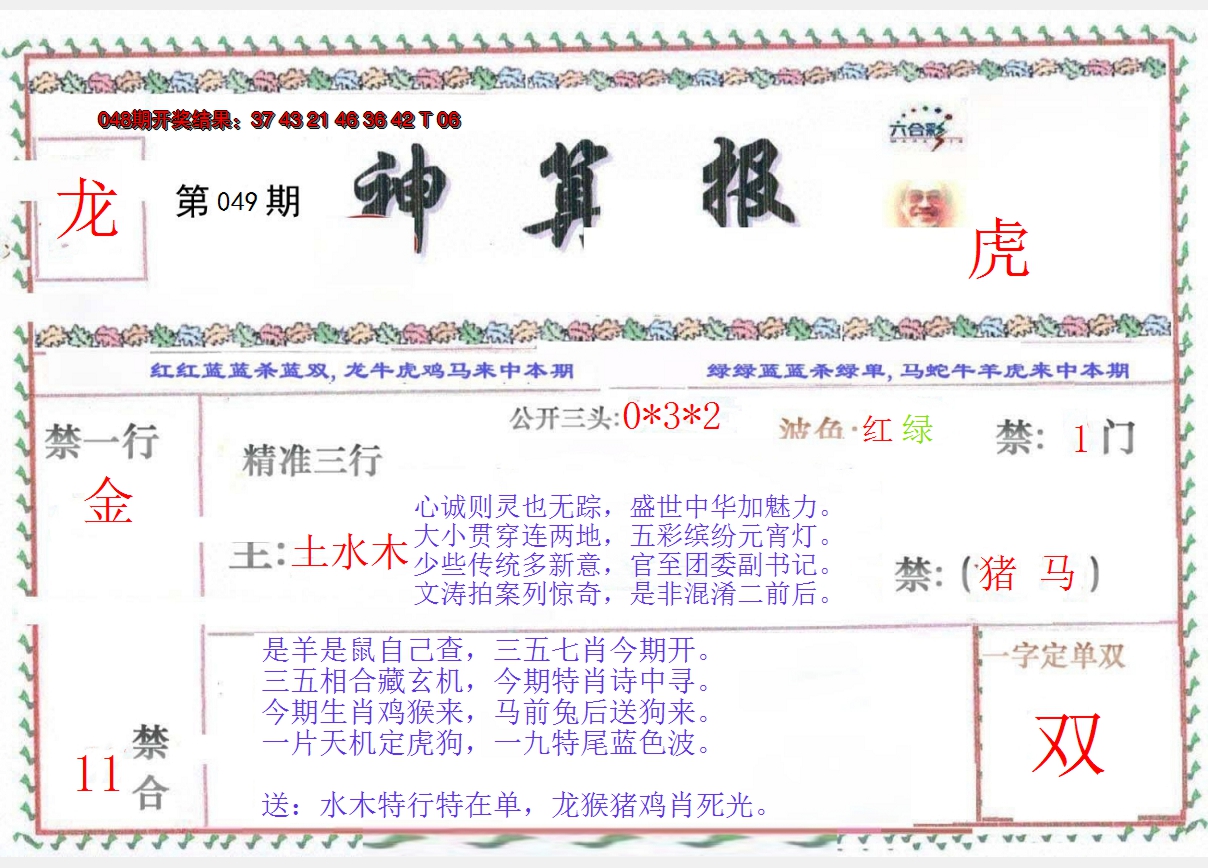 048期开奖结果：37 43 21 46 36 42 T 06
六合彩
龙
第 049 期
神算报
虎
红红蓝蓝杀蓝双,龙牛虎鸡马来中本期
绿绿蓝蓝杀绿单,马蛇牛羊虎来中本期
禁一行
金
精准三行
主:土水木
公开三头:0*3*2
波色:红 绿
禁: 1 门
心诚则灵也无踪，盛世中华加魅力。
大小贯穿连两地，五彩缤纷元宵灯。
少些传统多新意，官至团委副书记。
文涛拍案列惊奇，是非混淆二前后。
禁:(猪 马)
11
禁合
是羊是鼠自己查，三五七肖今期开。
三五相合藏玄机，今期特肖诗中寻。
今期生肖鸡猴来，马前兔后送狗来。
一片天机定虎狗，一九特尾蓝色波。
送：水木特行特在单，龙猴猪鸡肖死光。
一字定单双
双